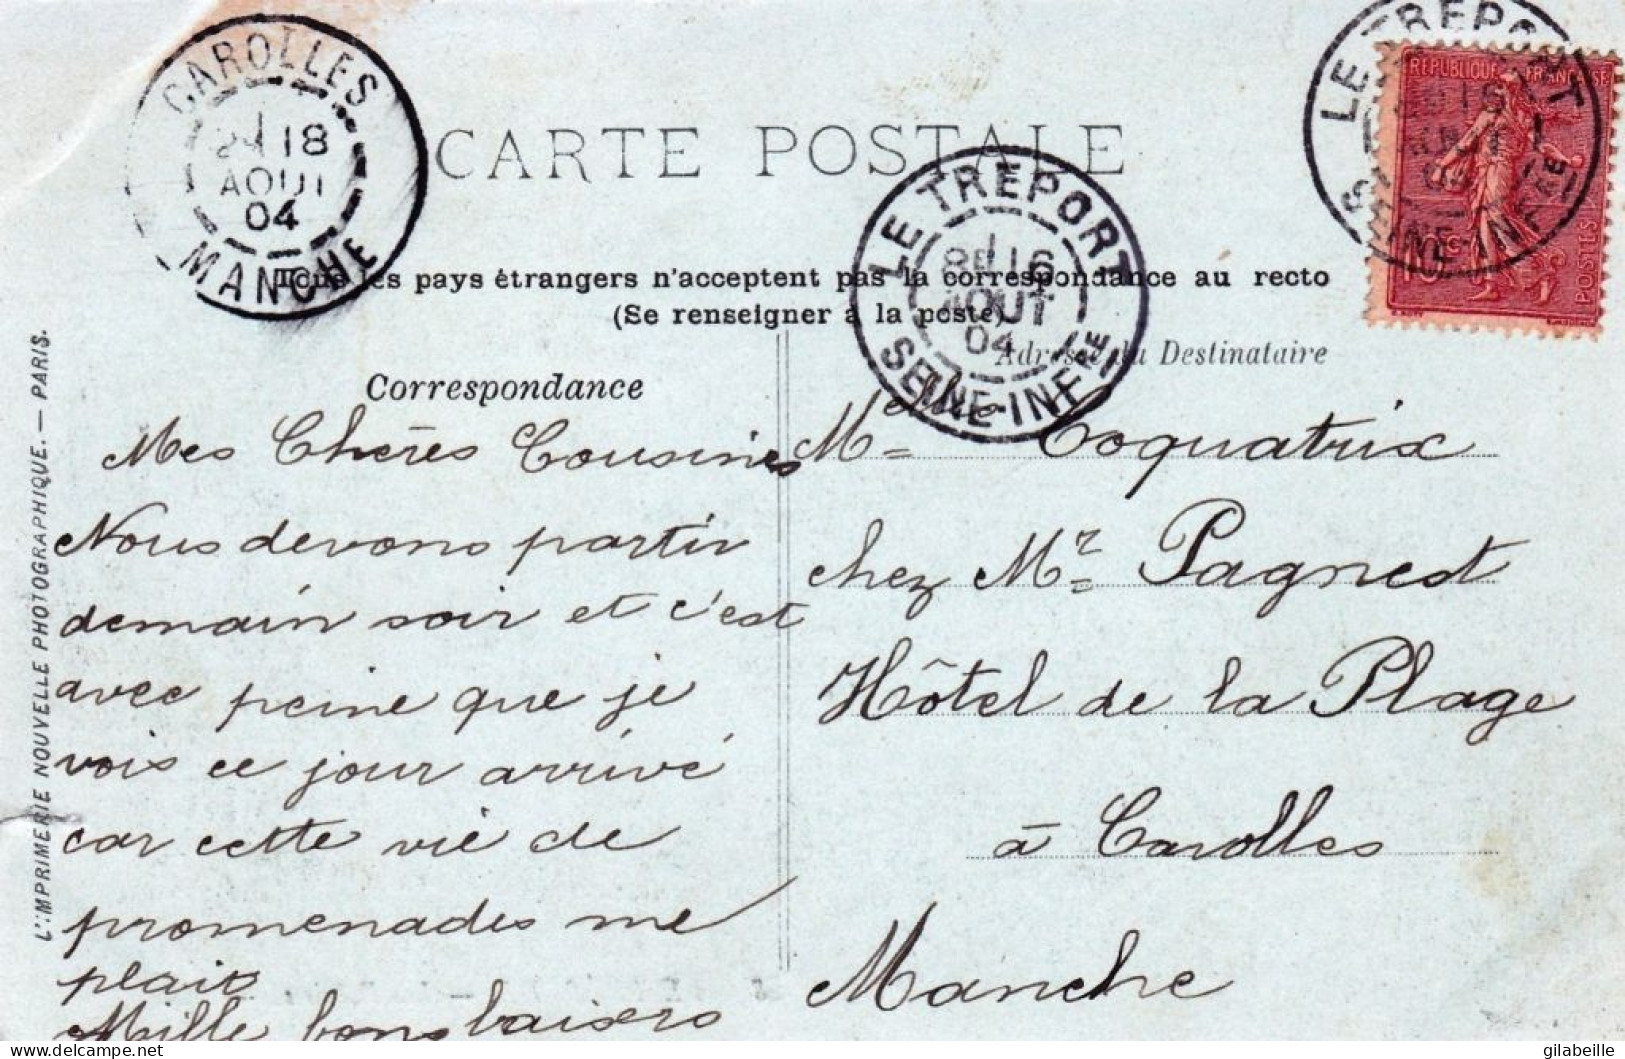 CAROLLES
2E 18
AOUT
04
MANCHE
CARTE POSTALE
LE TREPORT
8E 16
AOUT
04
SEINE-INFRE
LE TREPORT
16
04
SEINE-INFRE
REPUBLIQUE FRANÇAISE
10c
POSTES
Tous les pays étrangers n'acceptent pas la correspondance au recto
(Se renseigner à la poste)
Correspondance
Adresse du Destinataire
L'IMPRIMERIE NOUVELLE PHOTOGRAPHIQUE. — PARIS.
Mes Chères Cousines
Nous devons partir
demain soir et c'est
avec peine que je
vois ce jour arrivé
car cette vie de
promenades me
plait
Mille bons baisers
Melle Coquatrix
chez Mr Pagnest
Hôtel de la Plage
à Carolles
Manche
www.delcampe.net
gilabeille